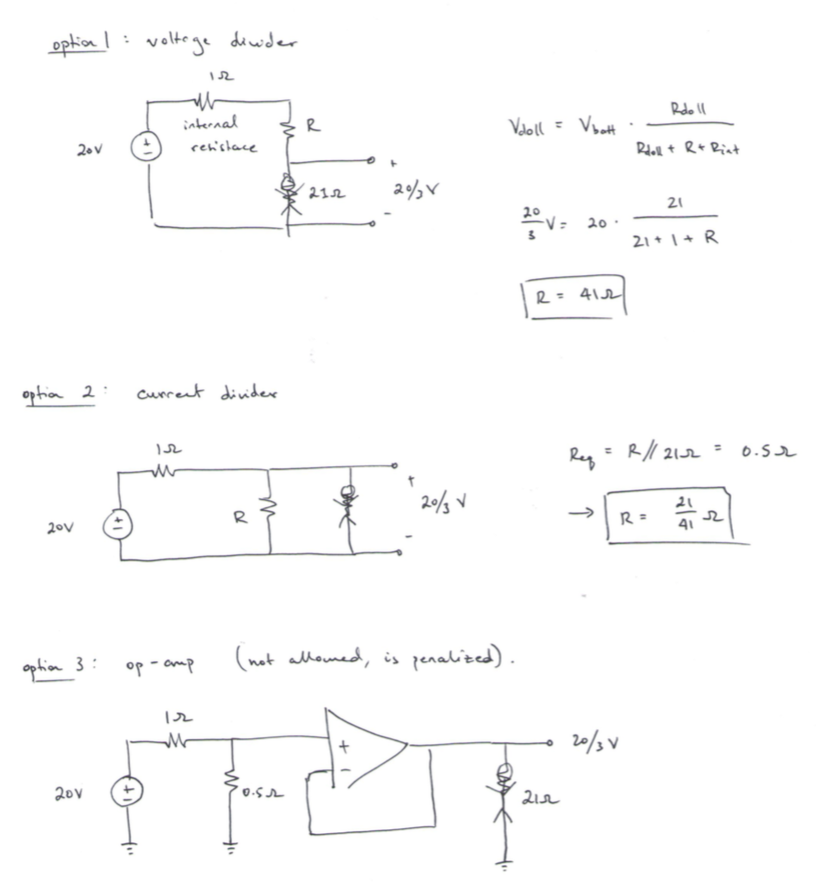 option 1 : voltage divider
1Ω
internal
resistace
R
20V
+
21Ω
20/3 V
-
Vdoll = Vbatt · Rdoll / Rdoll + R + Rint
20/3 V = 20 · 21 / 21 + 1 + R
R = 41Ω
option 2 : current divider
1Ω
20V
R
+
20/3 V
-
Req = R // 21Ω = 0.5Ω
→ R = 21/41 Ω
option 3 : op-amp (not allowed, is penalized).
1Ω
20V
0.5Ω
+
-
20/3 V
21Ω